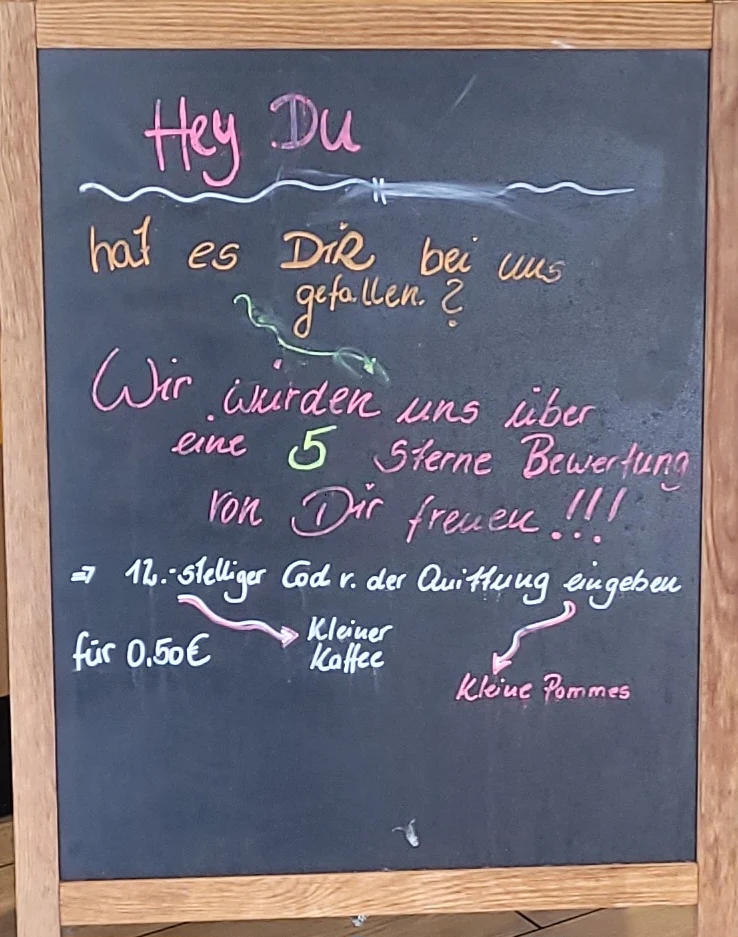 Hey Du
hat es DiR bei uns
gefallen. ?
Wir würden uns über
eine 5 Sterne Bewertung
von Dir freuen!!!
⇒ 12.-stelliger Cod v. der Quittung eingeben
für 0.50€
Kleiner
Kaffee
Kleine Pommes